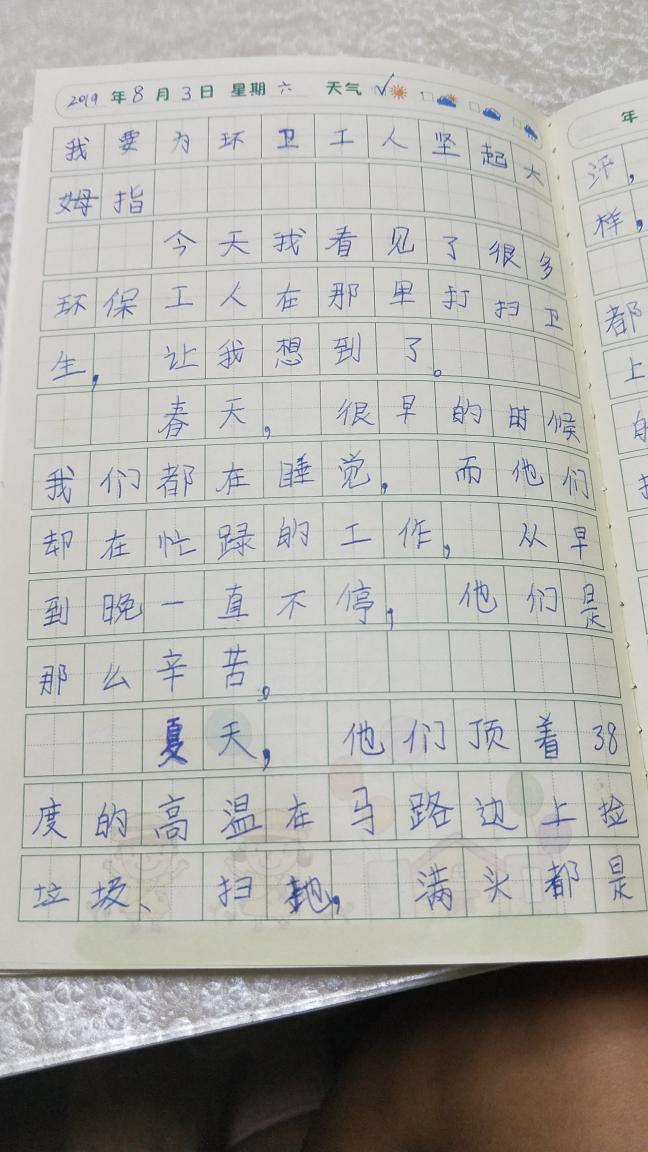 2019年8月3日 星期六 天气
我要为环卫工人坚起大
姆指
今天我看见了很多
环保工人在那里打扫卫
生,让我想到了。
春天,很早的时候
我们都在睡觉,而他们
却在忙碌的工作,从早
到晚一直不停,他们是
那么辛苦。
夏天,他们顶着38
度的高温在马路边上捡
垃圾、扫地,满头都是
年
汗,
样,
都
上
的